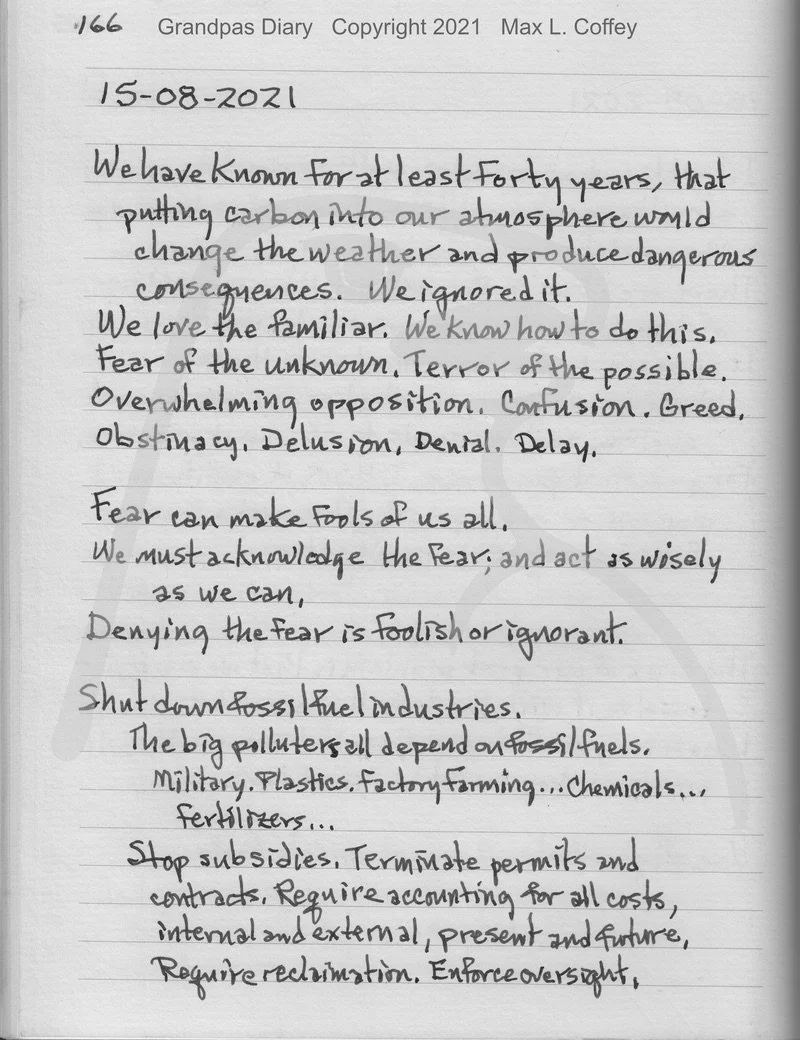 166 Grandpas Diary Copyright 2021 Max L. Coffey
15-08-2021
We have Known for at least forty years, that
putting carbon into our atmosphere would
change the weather and produce dangerous
consequences. We ignored it.
We love the familiar. We know how to do this.
Fear of the unknown. Terror of the possible.
Overwhelming opposition. Confusion. Greed.
Obstinacy. Delusion, Denial. Delay.
Fear can make fools of us all.
We must acknowledge the fear; and act as wisely
as we can,
Denying the fear is foolish or ignorant.
Shut down fossil fuel industries.
The big polluters all depend on fossil fuels.
Military. Plastics. Factory farming... Chemicals...
fertilizers...
Stop subsidies. Terminate permits and
contracts. Require accounting for all costs,
internal and external, present and future,
Require reclaimation. Enforce oversight,